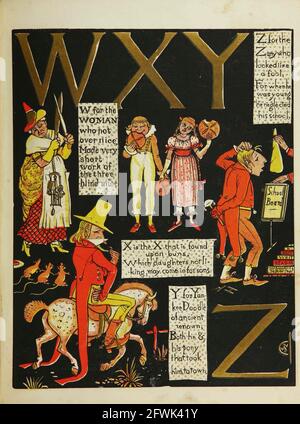 WXY
W for the
WOMAN
who not
over nice
Made very
short
work of
the three
blind mice
Z for the
Zany who
looked like
a fool,
For when he
was young
he neglected
his school.
School
Board
X is the X that is found
upon buns,
Which, daughters not li-
king, may come in for sons.
Y for Yan-
kee Doodle
of ancient
renown,
Both he &
his pony
that took
him to town.
Z
alamy
Image ID: 2FWK41Y
www.alamy.com